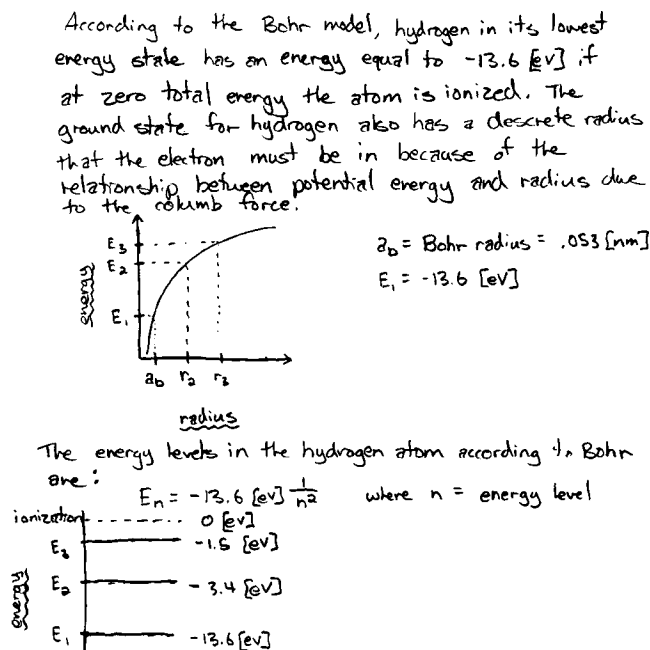 According to the Bohr model, hydrogen in its lowest
energy state has an energy equal to -13.6 [eV] if
at zero total energy the atom is ionized. The
ground state for hydrogen also has a descrete radius
that the electron must be in because of the
relationship between potential energy and radius due
to the columb force.
E₃
E₂
E₁
energy
a_b r₂ r₃
radius
a_b = Bohr radius = .053 [nm]
E₁ = -13.6 [eV]
The energy levels in the hydrogen atom according to Bohr
are:
E_n = -13.6 [eV] 1/n² where n = energy level
ionization 0 [eV]
E₃ -1.5 [eV]
E₂ -3.4 [eV]
E₁ -13.6 [eV]
energy